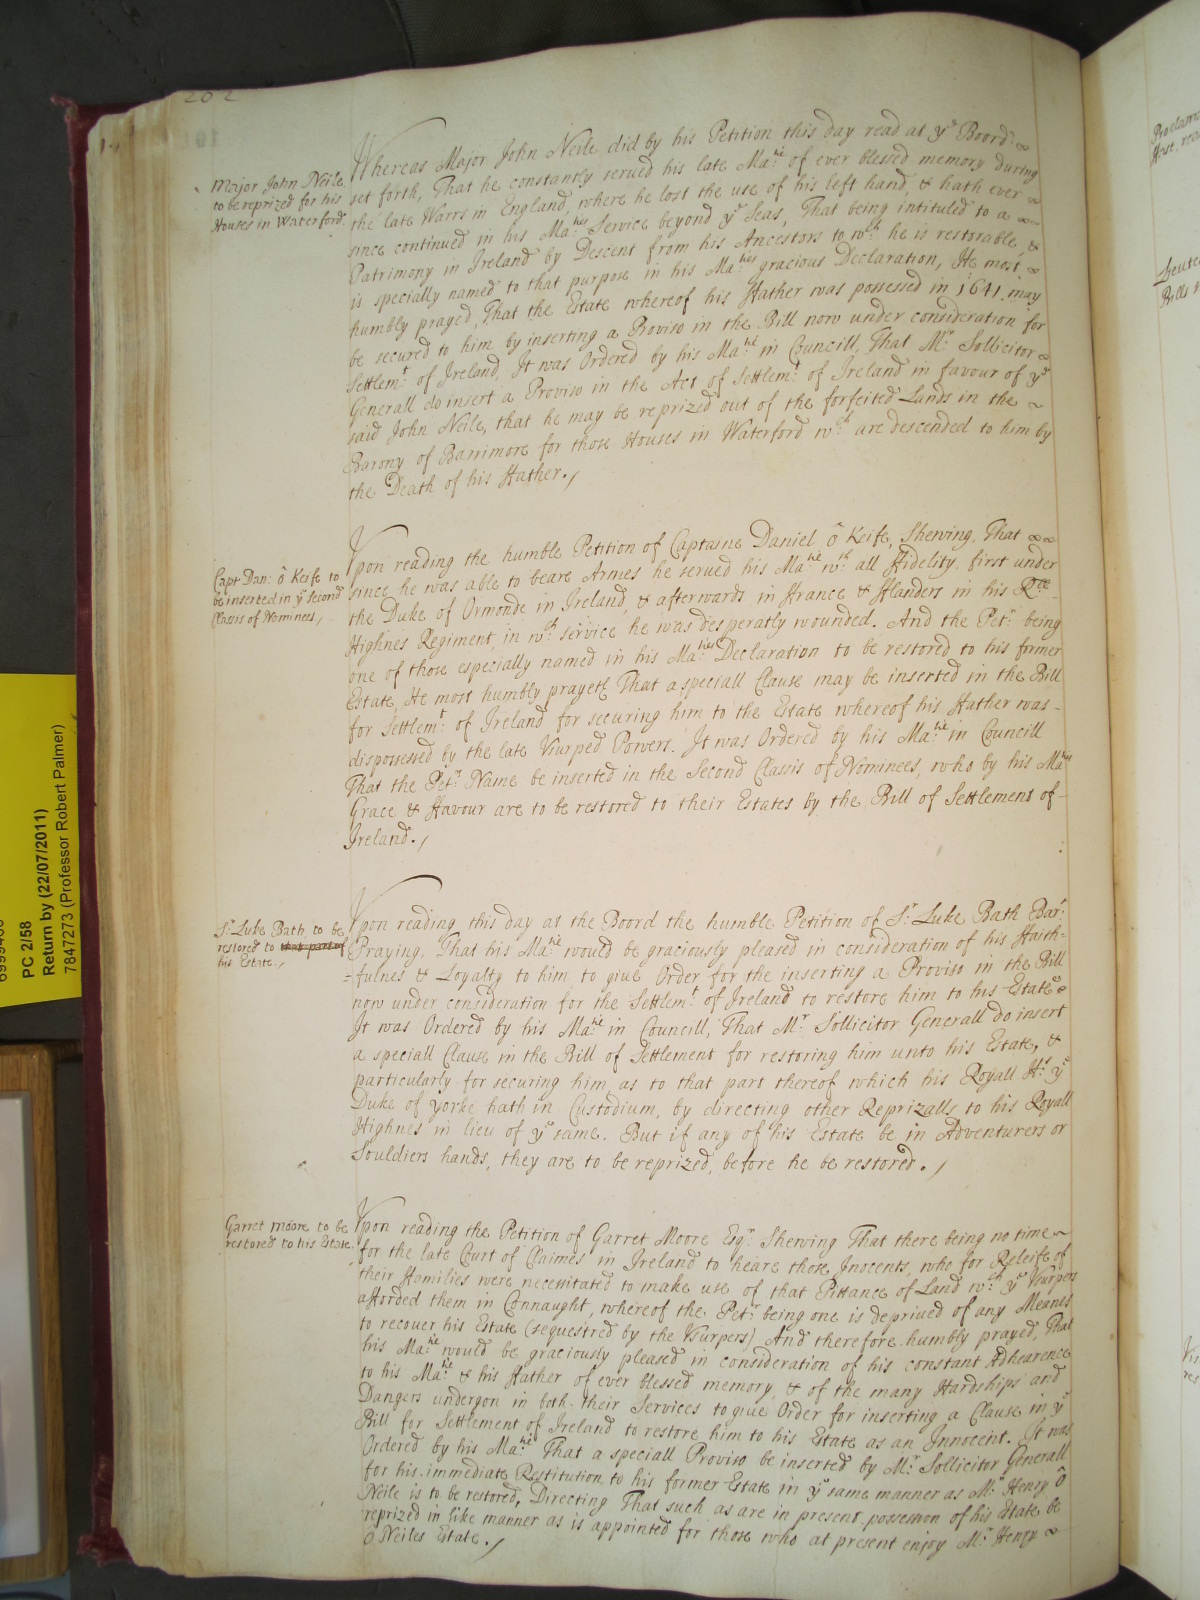 202
Major John Neile
to be reprized for his
Houses in Waterford.
Whereas Major John Neile did by his Petition this day read at yͤ Boord
set forth, That he constantly served his late Maᵗⁱᵉ of ever blessed memory during
the late Warrs in England, where he lost the use of his left hand, & hath ever
since continued in his Maᵗⁱᵉˢ Service beyond yͤ Seas, That being intituled to a
Patrimony in Ireland by Descent from his Ancestors to wᶜʰ he is restorable, &
is specially named to that purpose in his Maᵗⁱᵉˢ gracious Declaration, He most
humbly prayed, That the Estate whereof his Father was possessed in 1641 may
be secured to him by inserting a Proviso in the Bill now under consideration for
Settlemᵗ of Ireland, It was Ordered by his Maᵗⁱᵉ in Councill, That Mʳ Sollicitor
Generall do insert a Proviso in the Act of Settlemᵗ of Ireland in favour of yͤ
said John Neile, that he may be reprized out of the forfeited Lands in the
Barony of Barrimore for those Houses in Waterford wᶜʰ are descended to him by
the Death of his Father.
Capt Dan: ô Keife to
be inserted in yͤ second
Classis of Nominees,
Vpon reading the humble Petition of Captaine Daniel ô Keife, Shewing, That
since he was able to beare Armes he served his Maᵗⁱᵉ wᵗʰ all Fidelity first under
the Duke of Ormonde in Ireland, & afterwards in France & Flanders in his Rˡˡ
Highnes Regiment, in wᶜʰ service he was desperatly wounded. And the Petʳ being
one of those especially named in his Maᵗⁱᵉˢ Declaration to be restored to his former
Estate, He most humbly prayeth That a speciall Clause may be inserted in the Bill
for Settlemᵗ of Ireland for securing him to the Estate whereof his Father was
dispossessed by the late Vsurped Powers. It was Ordered by his Maᵗⁱᵉ in Councill
That the Petʳˢ Name be inserted in the Second Classis of Nominees, who by his Maᵗⁱᵉˢ
Grace & Favour are to be restored to their Estates by the Bill of Settlement of
Ireland.
Sʳ Luke Bath to be
restored to that part of
his Estate.
Vpon reading this day at the Boord the humble Petition of Sʳ Luke Bath Barᵗ
Praying, That his Maᵗⁱᵉ would be graciously pleased in consideration of his Faith-
=fulnes & Loyalty to him to give Order for the inserting a Proviso in the Bill
now under consideration for the Settlemᵗ of Ireland to restore him to his Estate
It was Ordered by his Maᵗⁱᵉ in Councill, That Mʳ Sollicitor Generall do insert
a speciall Clause in the Bill of Settlement for restoring him unto his Estate, &
particularly for securing him as to that part thereof which his Royall Hˢ yͤ
Duke of Yorke hath in Custodium, by directing other Reprizalls to his Royall
Highnes in lieu of yͤ same. But if any of his Estate be in Adventurers or
Souldiers hands, they are to be reprized, before he be restored.
Garret Moore to be
restored to his Estate.
Vpon reading the Petition of Garret Moore Esqʳ Shewing That there being no time
for the late Court of Claimes in Ireland to heare those Inocents, who for Releife of
their Families were necessitated to make use of that Pittance of Land wᶜʰ yͤ Vsurpers
afforded them in Connaught, whereof the Petʳ being one is deprived of any Meanes
to recover his Estate (sequestred by the Vsurpers) And therefore humbly prayed, That
his Maᵗⁱᵉ would be graciously pleased in consideration of his constant Adhearence
to his Maᵗⁱᵉ & his Father of ever blessed memory, & of the many Hardships and
Dangers undergon in both their Services to give Order for inserting a Clause in yͤ
Bill for Settlement of Ireland to restore him to his Estate as an Innocent. It was
Ordered by his Maᵗⁱᵉ That a speciall Proviso be inserted by Mʳ Sollicitor Generall
for his immediate Restitution to his former Estate in yͤ same manner as Mʳ Henry O
Neile is to be restored, Directing That such as are in present possession of his Estate be
reprized in like manner as is appointed for those who at present enjoy Mʳ Henry
O Neiles Estate.
PC 2/58
Return by (22/07/2011)
7847273 (Professor Robert Palmer)